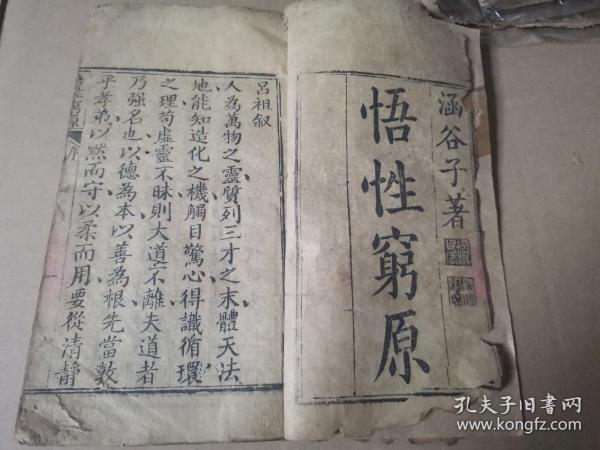 涵谷子著
悟性窮原
呂祖叙
人為萬物之靈質列三才之末體天法
地能知造化之機觸目驚心得識循環
之理苟虛靈不昧則大道不離夫道者
乃强名也以德為本以善為根先當敦
乎孝弟以默而守以柔而用要從清靜
序
孔夫子旧书网
www.kongfz.com